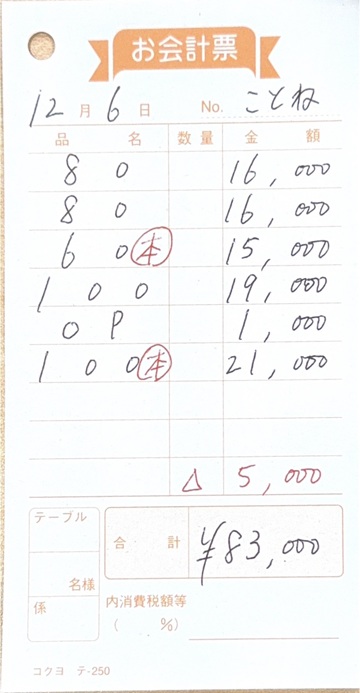 お会計票
12月6日 No. ことね
品名 数量 金額
80 16,000
80 16,000
60 本 15,000
100 19,000
OP 1,000
100 本 21,000
△ 5,000
テーブル
名様
合計 ¥83,000
係
内消費税額等
( %)
コクヨ テ-250